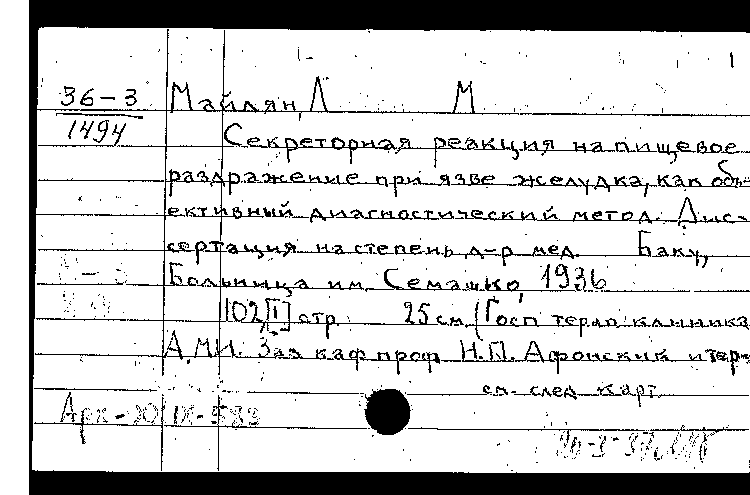 1
36-3
1494
Майлян, Л М
Секреторная реакция на пищевое
раздражение при язве желудка, как объ-
ективный диагностический метод. Дис-
сертация на степень д-р мед. Баку,
Больница им. Семашко, 1936
102, [I] стр. 25 см. (Госп терап. клиника
А.МИ. Зав каф проф Н.П. Афонский и тер-
см. след карт.
Арх-